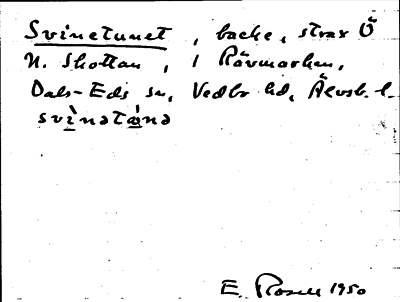 Svinetunet, backe, strax Ö
N. Skottan, i Rävmarken,
Dals-Eds sn, Vedbo hd, Älvsb. l.
svìnətànə
E. Rosell 1950